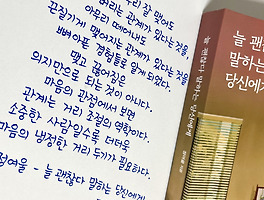 우리 잘 맺어도
버려는 관계가 있다는 것을,
아무리 떼어내도
끈질기게 맺어지는 관계가 있다는 것을
뼈아픈 경험들로 알게 되었다.
맺고 끊어짐은
의지만으로 되는 것이 아니다.
마음의 관점에서 보면
관계는 거리 조절의 역학이다.
소중한 사람일수록 더더욱
마음의 냉정한 거리 두기가 필요하다.
정여울 - 늘 괜찮다 말하는 당신에게
늘 괜찮다 말하는 당신에게
늘 괜찮
말하는
당신에게